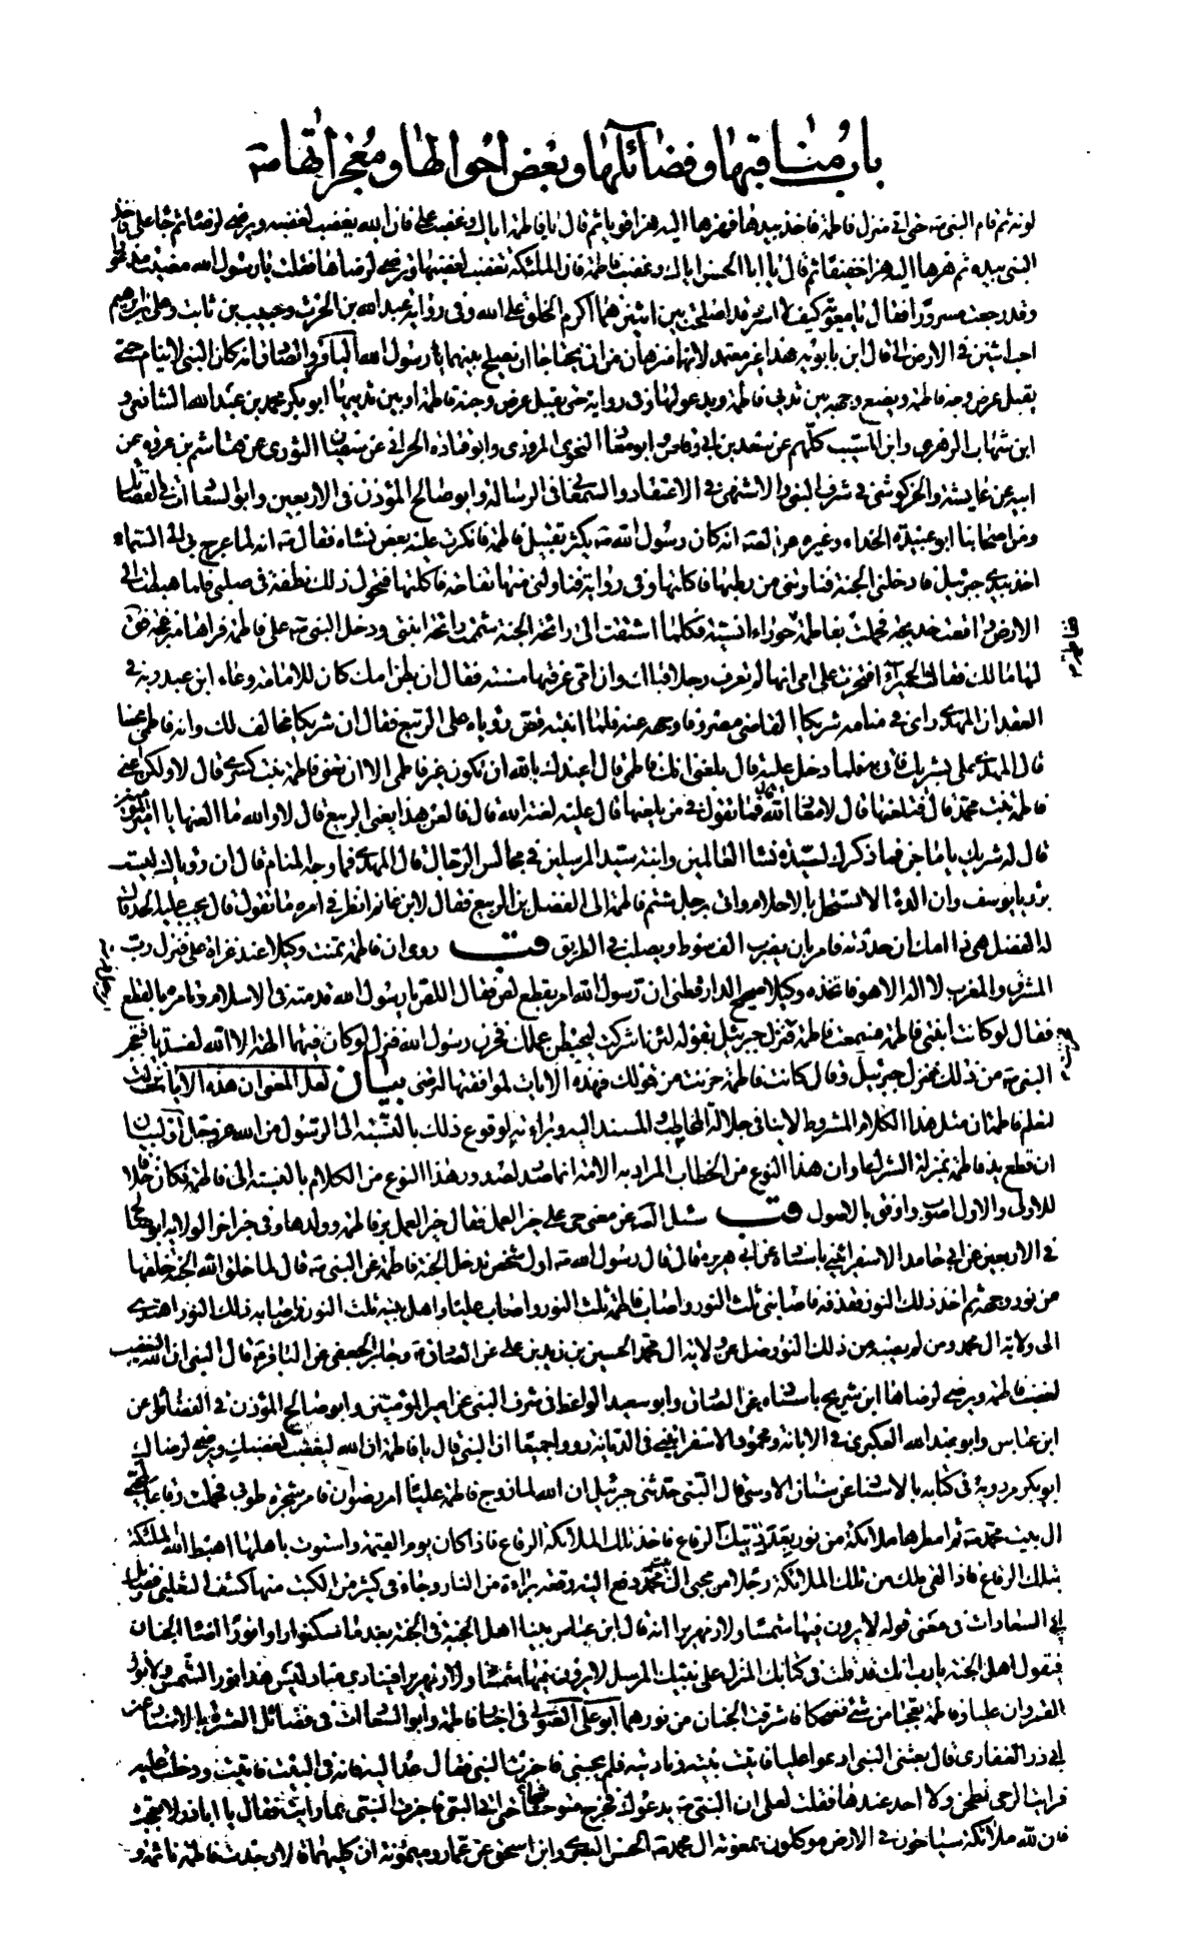 باب مناقبها وفضائلها وبعض احوالها ومعجزاتها ص
لونه ثم قام النبي ص حتى اتى منزل فاطمة فاخذ بيدها فهزها اليه هزا قويا ثم قال يا فاطمة اياك وغضب علي فان الله يغضب لغضبه ويرضى لرضاه ثم جاء علي فاخذ
النبي بيده ثم هزها اليه هزا خفيفا ثم قال يا ابا الحسن اياك وغضب فاطمة فان الملئكة تغضب لغضبها وترضى لرضاها فقلت يا رسول الله مضيت مذعورا
وقد رجعت مسرورا فقال يا معوية كيف لا اسر وقد اصلحت بين اثنين هما اكرم الخلق على الله وفي رواية عبد الله بن الحرث وحبيب بن ثابت وعلي بن ابرهيم
احب اثنين في الارض الي قال ابن بابويه هذا غير معتمد لانهما منزهان من ان يحتاجا ان يصلح بينهما رسول الله الباقر والصادق انه كان النبي لا ينام حتى
يقبل عرض وجه فاطمة ويضع وجهه بين ثديي فاطمة ويدعو لها وفي رواية حتى يقبل عرض وجنة فاطمة او بين ثدييها ابو بكر محمد بن عبد الله الشافعي و
ابن شهاب الزهري وابن المسيب كلهم عن سعد بن ابي وقاص وابو معاذ النحوي المروزي وابو قتادة الحراني عن سفيان الثوري عن هاشم بن عروة عن
ابيه عن عايشة والخركوشي في شرف النبي والاشنهي في الاعتقاد والسمعاني في الرسالة وابو صالح المؤذن في الاربعين وابو السعادات في الفضائل
ومن اصحابنا ابو عبيدة الحذاء وغيره عن الصادق انه كان رسول الله ص يكثر تقبيل فاطمة فانكرت عليه بعض نسائه فقال ص انه لما عرج بي الى السماء
اخذ بيدي جبرئيل فادخلني الجنة فناولني من رطبها فاكلتها وفي رواية فناولني منها تفاحة فاكلتها فتحول ذلك نطفة في صلبي فلما هبطت الى
الارض واقعت خديجة فحملت بفاطمة ففاطمة حوراء انسية فكلما اشتقت الى رائحة الجنة شممت رائحة ابنتي ودخل النبي ص على فاطمة فراها منزعجة فقال
لها ما لك فقالت الحميراء افتخرت على امي انها لم تعرف رجلا قبلك وان امي عرفتها مسنة فقال ان بطن امك كان للامامة وعاء ابن عبد ربه في
العقد ان المهدي راى في منامه شريكا القاضي مصروفا وجهه عنه فلما انتبه قص رؤياه على الربيع فقال ان شريكا مخالف لك وانه فاطمي محضا
قال المهدي علي بشريك فاتي به فلما دخل عليه قال بلغني انك فاطمي قال اعيذك بالله ان تكون غير فاطمي الا ان تعني فاطمة بنت كسرى قال لا ولكن اعني
فاطمة بنت محمد قال فتلعنها قال لا معاذ الله قال فما تقول في من يلعنها قال عليه لعنة الله قال فالعن هذا يعني الربيع قال لا والله ما العنها يا امير المؤمنين
قال له شريك يا ماجن فما ذكرك لسيدة نساء العالمين وابنة سيد المرسلين في مجالس الرجال قال المهدي فما وجه المنام قال ان رؤياك ليست
برؤيا يوسف وان الدماء لا تستحل بالاحلام واتي برجل شتم فاطمة الى الفضل بن الربيع فقال لابن غانم انظر في امره ما تقول قال يجب عليه الحد قال
له الفضل هي ذا امك ان حددته فامر بان يضرب الف سوط ويصلب في الطريق قب روي ان فاطمة تمنت وكيلا عند غزاة علي فنزل رب
المشرق والمغرب لا اله الا هو فاتخذه وكيلا صحيح الدارقطني ان رسول الله امر بقطع لص فقال اللص يا رسول الله قدمته في الاسلام وتامره بالقطع
فقال لو كانت ابنتي فاطمة فسمعت فاطمة فحزنت فنزل جبرئيل بقوله لئن اشركت ليحبطن عملك فحزن رسول الله فنزل لو كان فيهما الهة الا الله لفسدتا فتعجب
النبي ص من ذلك فنزل جبرئيل وقال كانت فاطمة حزنت من قولك فهذه الايات لموافقتها لترضى بيان لعل المعنى ان هذه الايات نزلت
لتعلم فاطمة ان مثل هذا الكلام المشروط لا ينافي جلالة المخاطب والمسند اليه وبراءته لوقوع ذلك بالنسبة الى الرسول من الله عز وجل او لبيان
ان قطع يد فاطمة بمنزلة الشرك او ان هذا النوع من الخطاب المراد به الامة انما صدر لصدور هذا النوع من الكلام بالنسبة الى فاطمة فكان خلافا
للاولى والاول اصوب واوفق بالاصول قب سئل الص عن معنى حي على خير العمل فقال خير العمل بر فاطمة وولدها وفي خبر اخر الولاية ابو صالح
في الاربعين عن ابي حامد الاسفرائيني باسناده عن ابي هريرة قال قال رسول الله ص اول شخص تدخل الجنة فاطمة عن النبي ص قال لما خلق الله الجنة خلقها
من نور وجهه ثم اخذ ذلك النور فقذفه فاصابني ثلث النور واصاب فاطمة ثلث النور واصاب عليا واهل بيته ثلث النور فمن اصابه ذلك النور اهتدى
الى ولاية ال محمد ومن لم يصبه من ذلك النور ضل عن ولاية ال محمد الحسين بن زيد بن علي عن الصادق وجابر الجعفي عن الباقر قال النبي ان الله ليغضب
لغضب فاطمة ويرضى لرضاها ابن شريح باسناده عن الصادق وابو سعيد الواعظ في شرف النبي عن امير المؤمنين وابو صالح المؤذن في الفضائل عن
ابن عباس وابو عبد الله العكبري في الابانة ومحمود الاسفرائيني في الديانة رووا جميعا ان النبي قال يا فاطمة ان الله ليغضب لغضبك ويرضى لرضاك
ابو بكر مردويه في كتابه بالاسناد عن سنان الاوسي قال النبي حدثني جبرئيل ان الله لما زوج فاطمة عليا امر رضوان فامر شجرة طوبى فحملت رقاعا لمحبي
ال بيت محمد ص ثم امطرها ملائكة من نور بعدد تيك الرقاع فاخذ تلك الملائكة الرقاع فاذا كان يوم القيمة واستوت باهلها اهبط الله الملئكة
بتلك الرقاع فاذا لقي ملك من تلك الملائكة رجلا من محبي ال بيت محمد دفع اليه رقعة براءة من النار وجاء في كثير من الكتب منها كشف الثعلبي وفضائل
ابي السعادات في معنى قوله لا يرون فيها شمسا ولا زمهريرا انه قال ابن عباس بينا اهل الجنة في الجنة بعد ما سكنوا راوا نورا اضاء الجنان
فيقول اهل الجنة يا رب انك قد قلت في كتابك المنزل على نبيك المرسل لا يرون فيها شمسا ولا زمهريرا فينادي مناد ليس هذا نور الشمس ولا نور
القمر وان عليا وفاطمة تعجبا من شيء فضحكا فاشرقت الجنان من نورهما ابو علي الصولي في اخبار فاطمة وابو السعادات في فضائل العشرة بالاسناد عن
ابي ذر الغفاري قال بعثني النبي ادعو عليا فاتيت بيته وناديته فلم يجبني فاخبرت النبي فقال عد اليه فانه في البيت فاتيت ودخلت عليه
فرايت الرحى تطحن ولا احد عندها فقلت لعلي ان النبي ص يدعوك فخرج متوحشا حتى اتى النبي فاخبرت النبي بما رايت فقال يا ابا ذر لا تعجب
فان لله ملائكة سياحون في الارض موكلون بمعونة ال محمد ص الحسن البصري وابن اسحق عن عمار وميمونة ان كليهما قالا وجدت فاطمة نائمة و